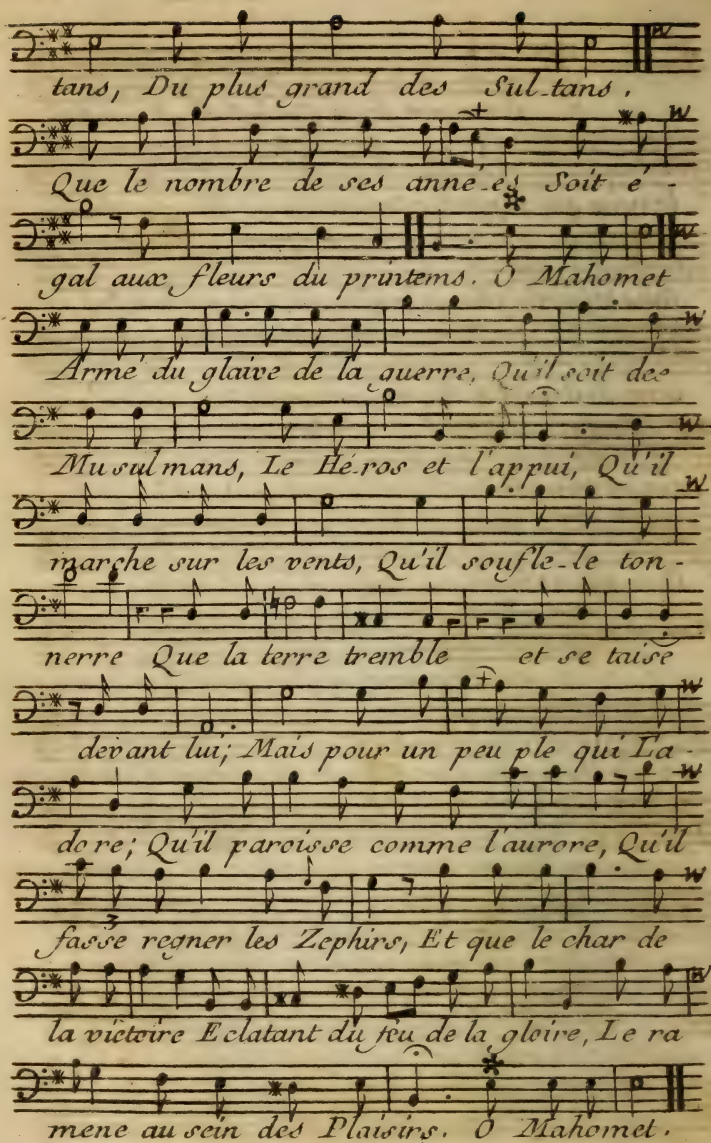 tans, Du plus grand des Sul-tans.
Que le nombre de ses anné-es Soit é-
gal aux fleurs du printems. O Mahomet
Armé du glaive de la guerre, Qu'il soit des
Musulmans, Le Hé-ros et l'appui, Qu'il
marche sur les vents, Qu'il soufle-le ton-
nerre Que la terre tremble et se taise
devant lui; Mais pour un peu ple qui L'a-
dore; Qu'il paroisse comme l'aurore, Qu'il
3
fasse regner les Zephirs, Et que le char de
la victoire Eclatant du feu de la gloire, Le ra
mene au sein des Plaisirs. O Mahomet.